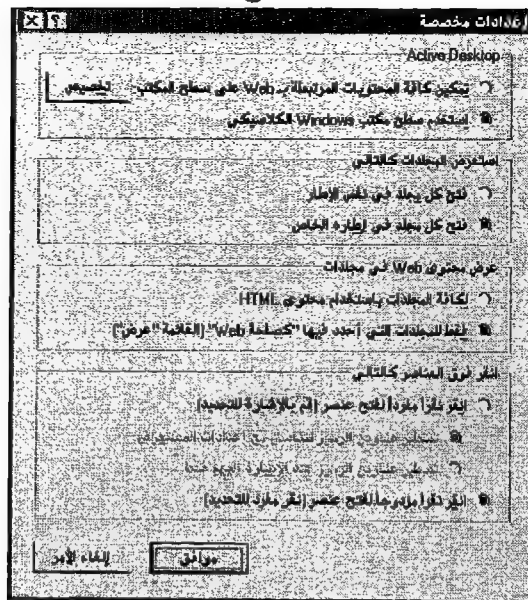 إعدادات مخصصة
Active Desktop
تمكين كافة المحتويات المرتبطة بـ Web على سطح المكتب
تخصيص
استخدم سطح مكتب Windows الكلاسيكي
استعرض المجلدات كالتالي
فتح كل مجلد في نفس الإطار
فتح كل مجلد في إطاره الخاص
عرض محتوى Web في مجلدات
لكافة المجلدات باستخدام محتوى HTML
فقط للمجلدات التي أحدد فيها "كصفحة Web" (القائمة "عرض")
انقر فوق العناصر كالتالي
انقر نقراً مفرداً لفتح عنصر (قم بالإشارة للتحديد)
انقر نقراً مزدوجاً لفتح عنصر (نقر مفرد للتحديد)
موافق
إلغاء الأمر